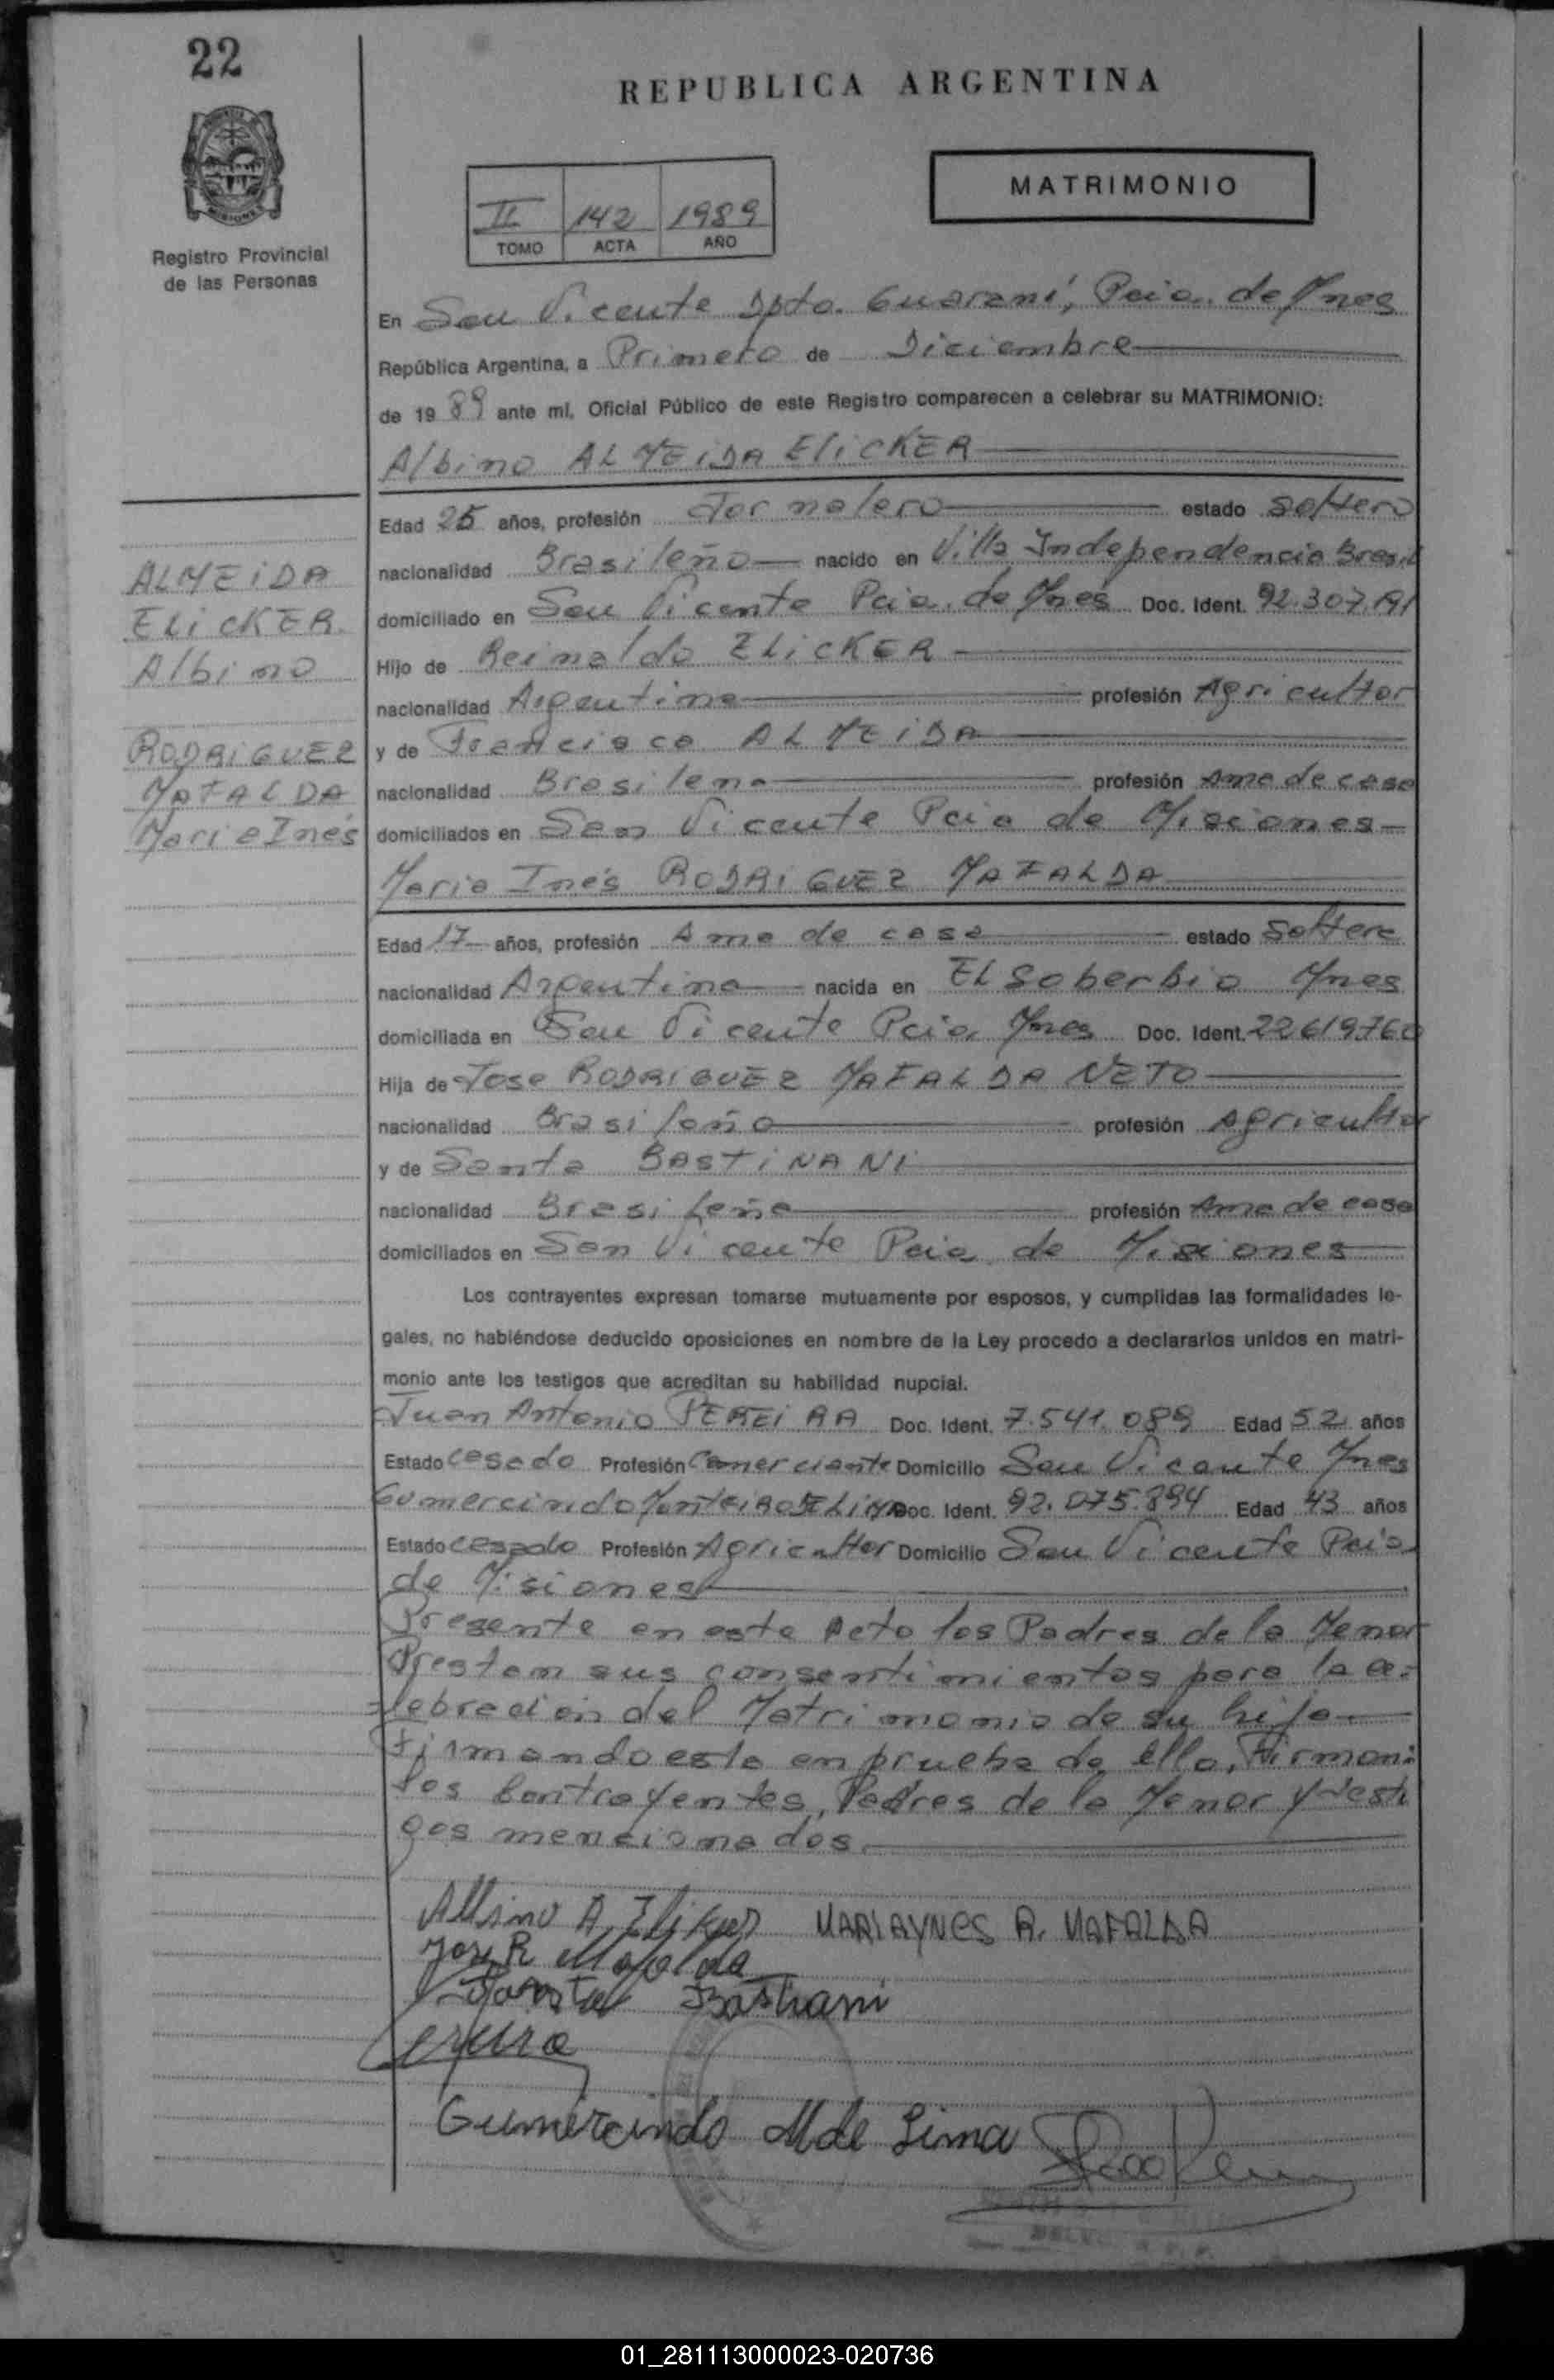 22
REPUBLICA ARGENTINA
MATRIMONIO
II 142 1989
TOMO ACTA AÑO
Registro Provincial
de las Personas
En San Vicente Dpto. Guaraní, Pcia. de Mnes
República Argentina, a Primero de Diciembre
de 1989 ante mí, Oficial Público de este Registro comparecen a celebrar su MATRIMONIO:
Albino ALMEIDA ELICKER
Edad 25 años, profesión Jornalero estado Soltero
nacionalidad Brasileño nacido en Villa Independencia Brasil
domiciliado en San Vicente Pcia. de Mnes Doc. Ident. 92.307.191
Hijo de Reinaldo ELICKER
nacionalidad Argentina profesión Agricultor
y de Francisca ALMEIDA
nacionalidad Brasilena profesión Ama de casa
domiciliados en San Vicente Pcia de Misiones
Maria Inés RODRIGUEZ MAFALDA
Edad 17 años, profesión Ama de casa estado Soltera
nacionalidad Argentina nacida en EL Soberbio Mnes
domiciliada en San Vicente Pcia. Mnes Doc. Ident. 22619760
Hija de Jose RODRIGUEZ MAFALDA NETO
nacionalidad Brasileño profesión Agricultor
y de Santa BASTINANI
nacionalidad Brasileña profesión Ama de casa
domiciliados en San Vicente Pcia de Misiones
Los contrayentes expresan tomarse mutuamente por esposos, y cumplidas las formalidades le-
gales, no habiéndose deducido oposiciones en nombre de la Ley procedo a declararlos unidos en matri-
monio ante los testigos que acreditan su habilidad nupcial.
Juan Antonio PEREIRA Doc. Ident. 7.541.089 Edad 52 años
Estado casado Profesión Comerciante Domicilio San Vicente Mnes
Gumercindo Monteiro DE LIMA Doc. Ident. 92.075.894 Edad 43 años
Estado casado Profesión Agricultor Domicilio San Vicente Pcia.
de Misiones
Presente en este Acto los Padres de la Menor
Prestan sus consentimientos para la ce=
lebracion del Matrimonio de su hija
Firmando esta en prueba de ello, Firman:
los Contrayentes, Padres de la Menor y testi
gos mencionados.
ALMEIDA
ELICKER
Albino
RODRIGUEZ
MAFALDA
Maria Inés
Albino A. Eliker MARIAYNES R. MAFALDA
Jose R Mafalda
Santa Bastiani
Gumercindo M de Lima
01_281113000023-020736